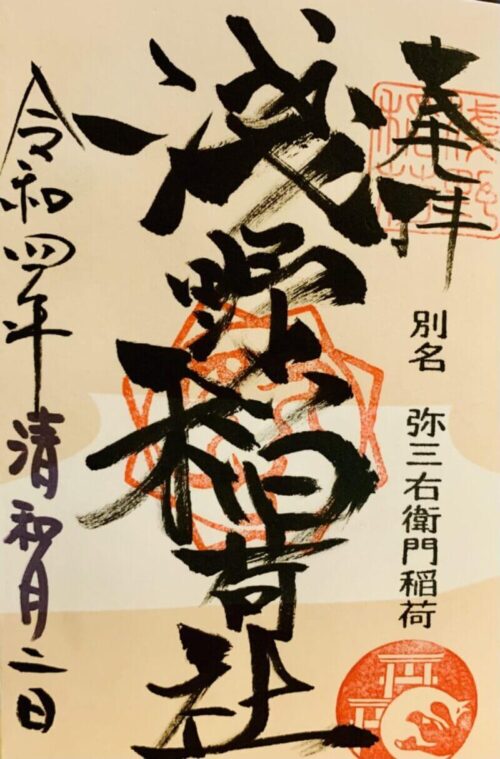 奉拝
別名 弥三右衛門稲荷
浅野稲荷社
令和四年清和月二日